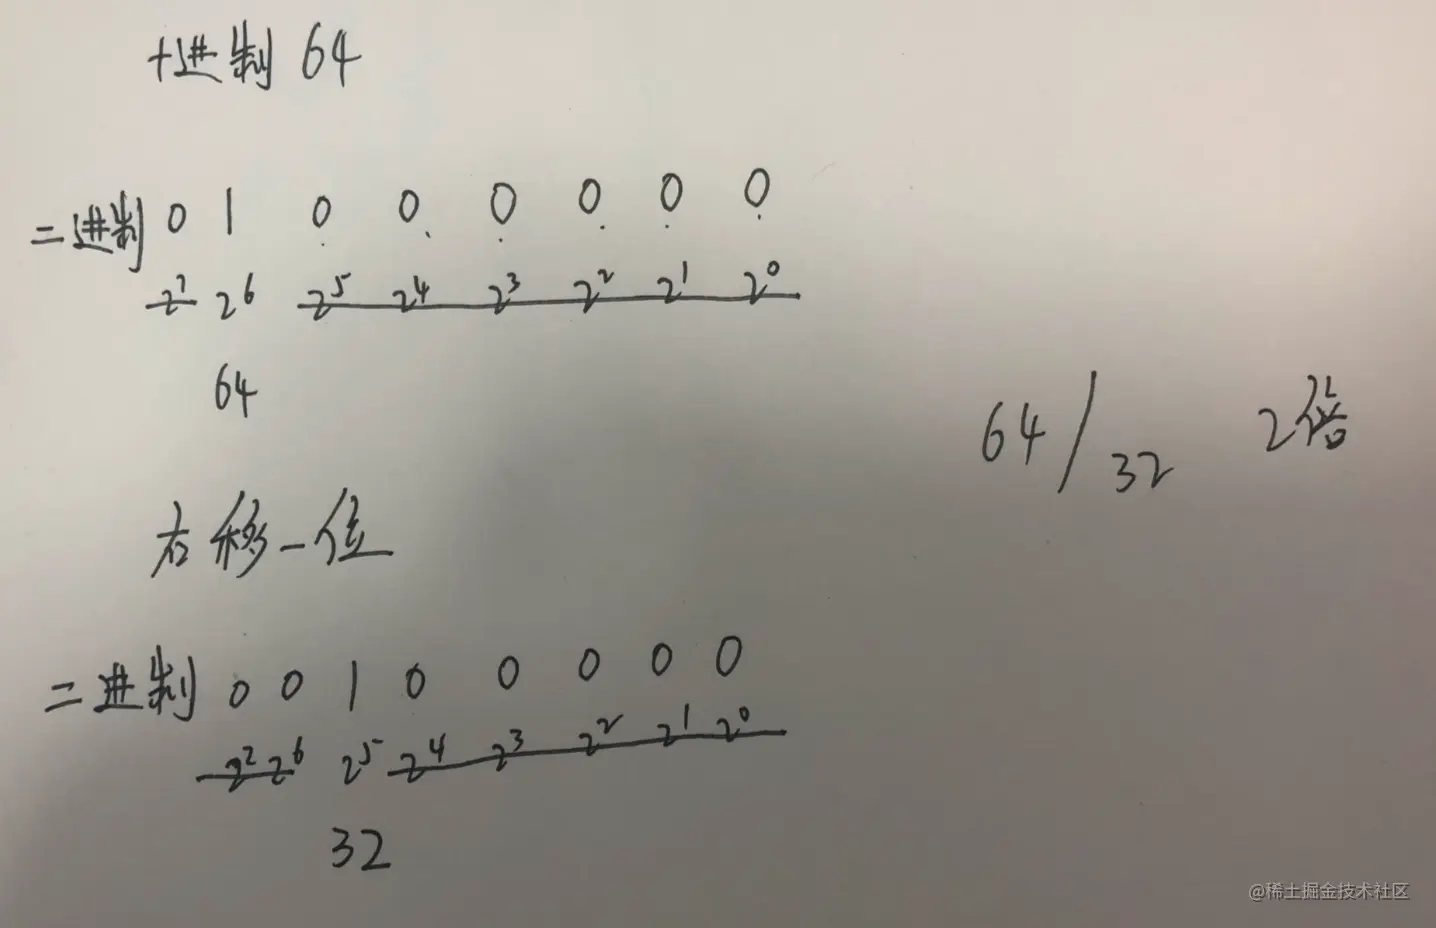 十进制 64
二进制 0 1 0 0 0 0 0 0
2⁷ 2⁶ 2⁵ 2⁴ 2³ 2² 2¹ 2⁰
64
64/32 2倍
右移一位
二进制 0 0 1 0 0 0 0 0
2² 2⁶ 2⁵ 2⁴ 2³ 2² 2¹ 2⁰
32
@稀土掘金技术社区